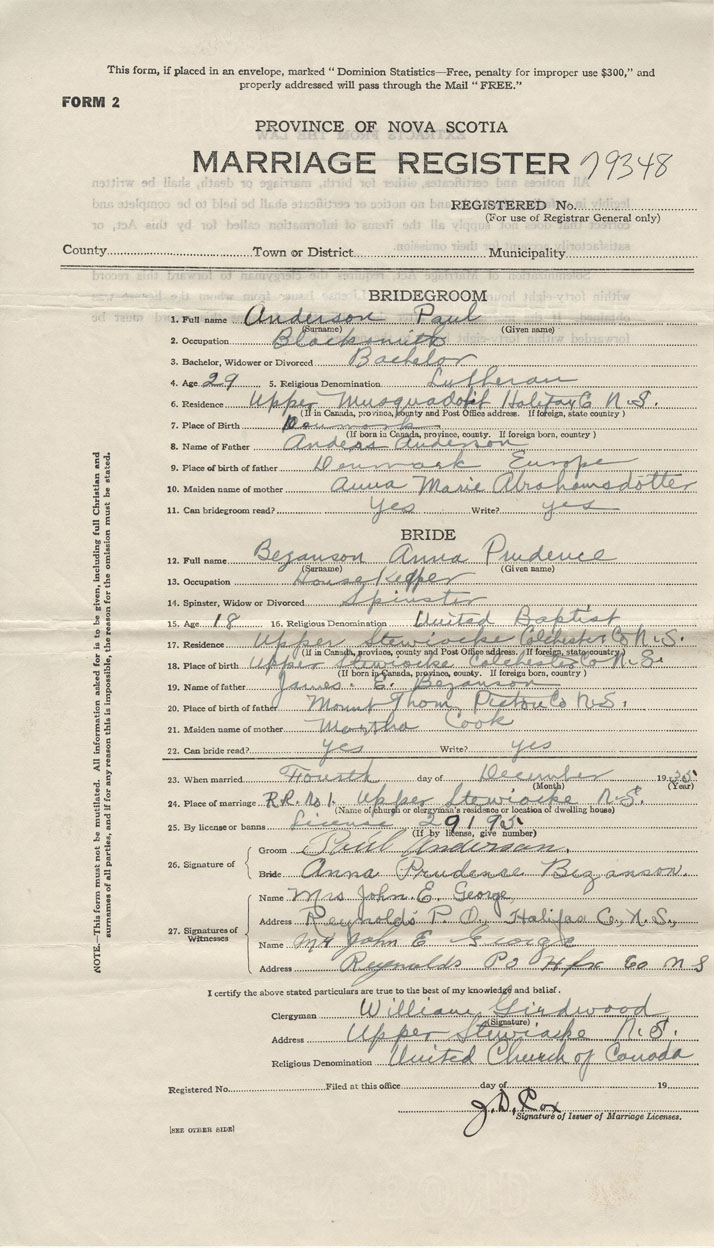 This form, if placed in an envelope, marked "Dominion Statistics—Free, penalty for improper use $300," and
properly addressed will pass through the Mail "FREE."
FORM 2
PROVINCE OF NOVA SCOTIA
MARRIAGE REGISTER 79348
REGISTERED No.
(For use of Registrar General only)
County Town or District Municipality
BRIDEGROOM
1. Full name Anderson Paul
(Surname) (Given name)
2. Occupation Blacksmith
3. Bachelor, Widower or Divorced Bachelor
4. Age 29 5. Religious Denomination Lutheran
6. Residence Upper Musquodoit Halifax Co N.S.
(If in Canada, province, county and Post Office address. If foreign, state country)
7. Place of Birth Denmark
(If born in Canada, province, county. If foreign born, country)
8. Name of Father Anders Anderson
9. Place of birth of father Denmark Europe
10. Maiden name of mother Anna Marie Abrahamsdotter
11. Can bridegroom read? Yes Write? yes
BRIDE
12. Full name Bezanson Anna Prudence
(Surname) (Given name)
13. Occupation Housekeeper
14. Spinster, Widow or Divorced Spinster
15. Age 18 16. Religious Denomination United Baptist
17. Residence Upper Stewiacke Colchester Co N.S.
(If in Canada, province, county and Post Office address. If foreign, state country)
18. Place of birth Upper Stewiacke Colchester Co N.S.
(If born in Canada, province, county. If foreign born, country)
19. Name of father James. E. Bezanson
20. Place of birth of father Mount Thom, Pictou Co N.S.
21. Maiden name of mother Martha Cook
22. Can bride read? yes Write? yes
23. When married Fourth day of December 19
(Month) (Year)
24. Place of marriage R.R. No 1. Upper Stewiacke N.S.
(Name of church or clergyman's residence or location of dwelling house)
25. By license or banns License 29195
(If by license, give number)
26. Signature of
Groom Paul Anderson.
Bride Anna Prudence Bezanson
27. Signatures of Witnesses
Name Mrs John E. George
Address Reynolds P.O., Halifax Co., N.S.,
Name Mr John E George
Address Reynolds PO Hfx Co N S
I certify the above stated particulars are true to the best of my knowledge and belief.
Clergyman William Girdwood
(Signature)
Address Upper Stewiacke N.S.
Religious Denomination United Church of Canada
Registered No. Filed at this office day of 19
J. D. Cox
Signature of Issuer of Marriage Licenses.
[SEE OTHER SIDE]
NOTE.—This form must not be mutilated. All information asked for is to be given, including full Christian and
surnames of all parties, and if for any reason this is impossible, the reason for the omission must be stated.